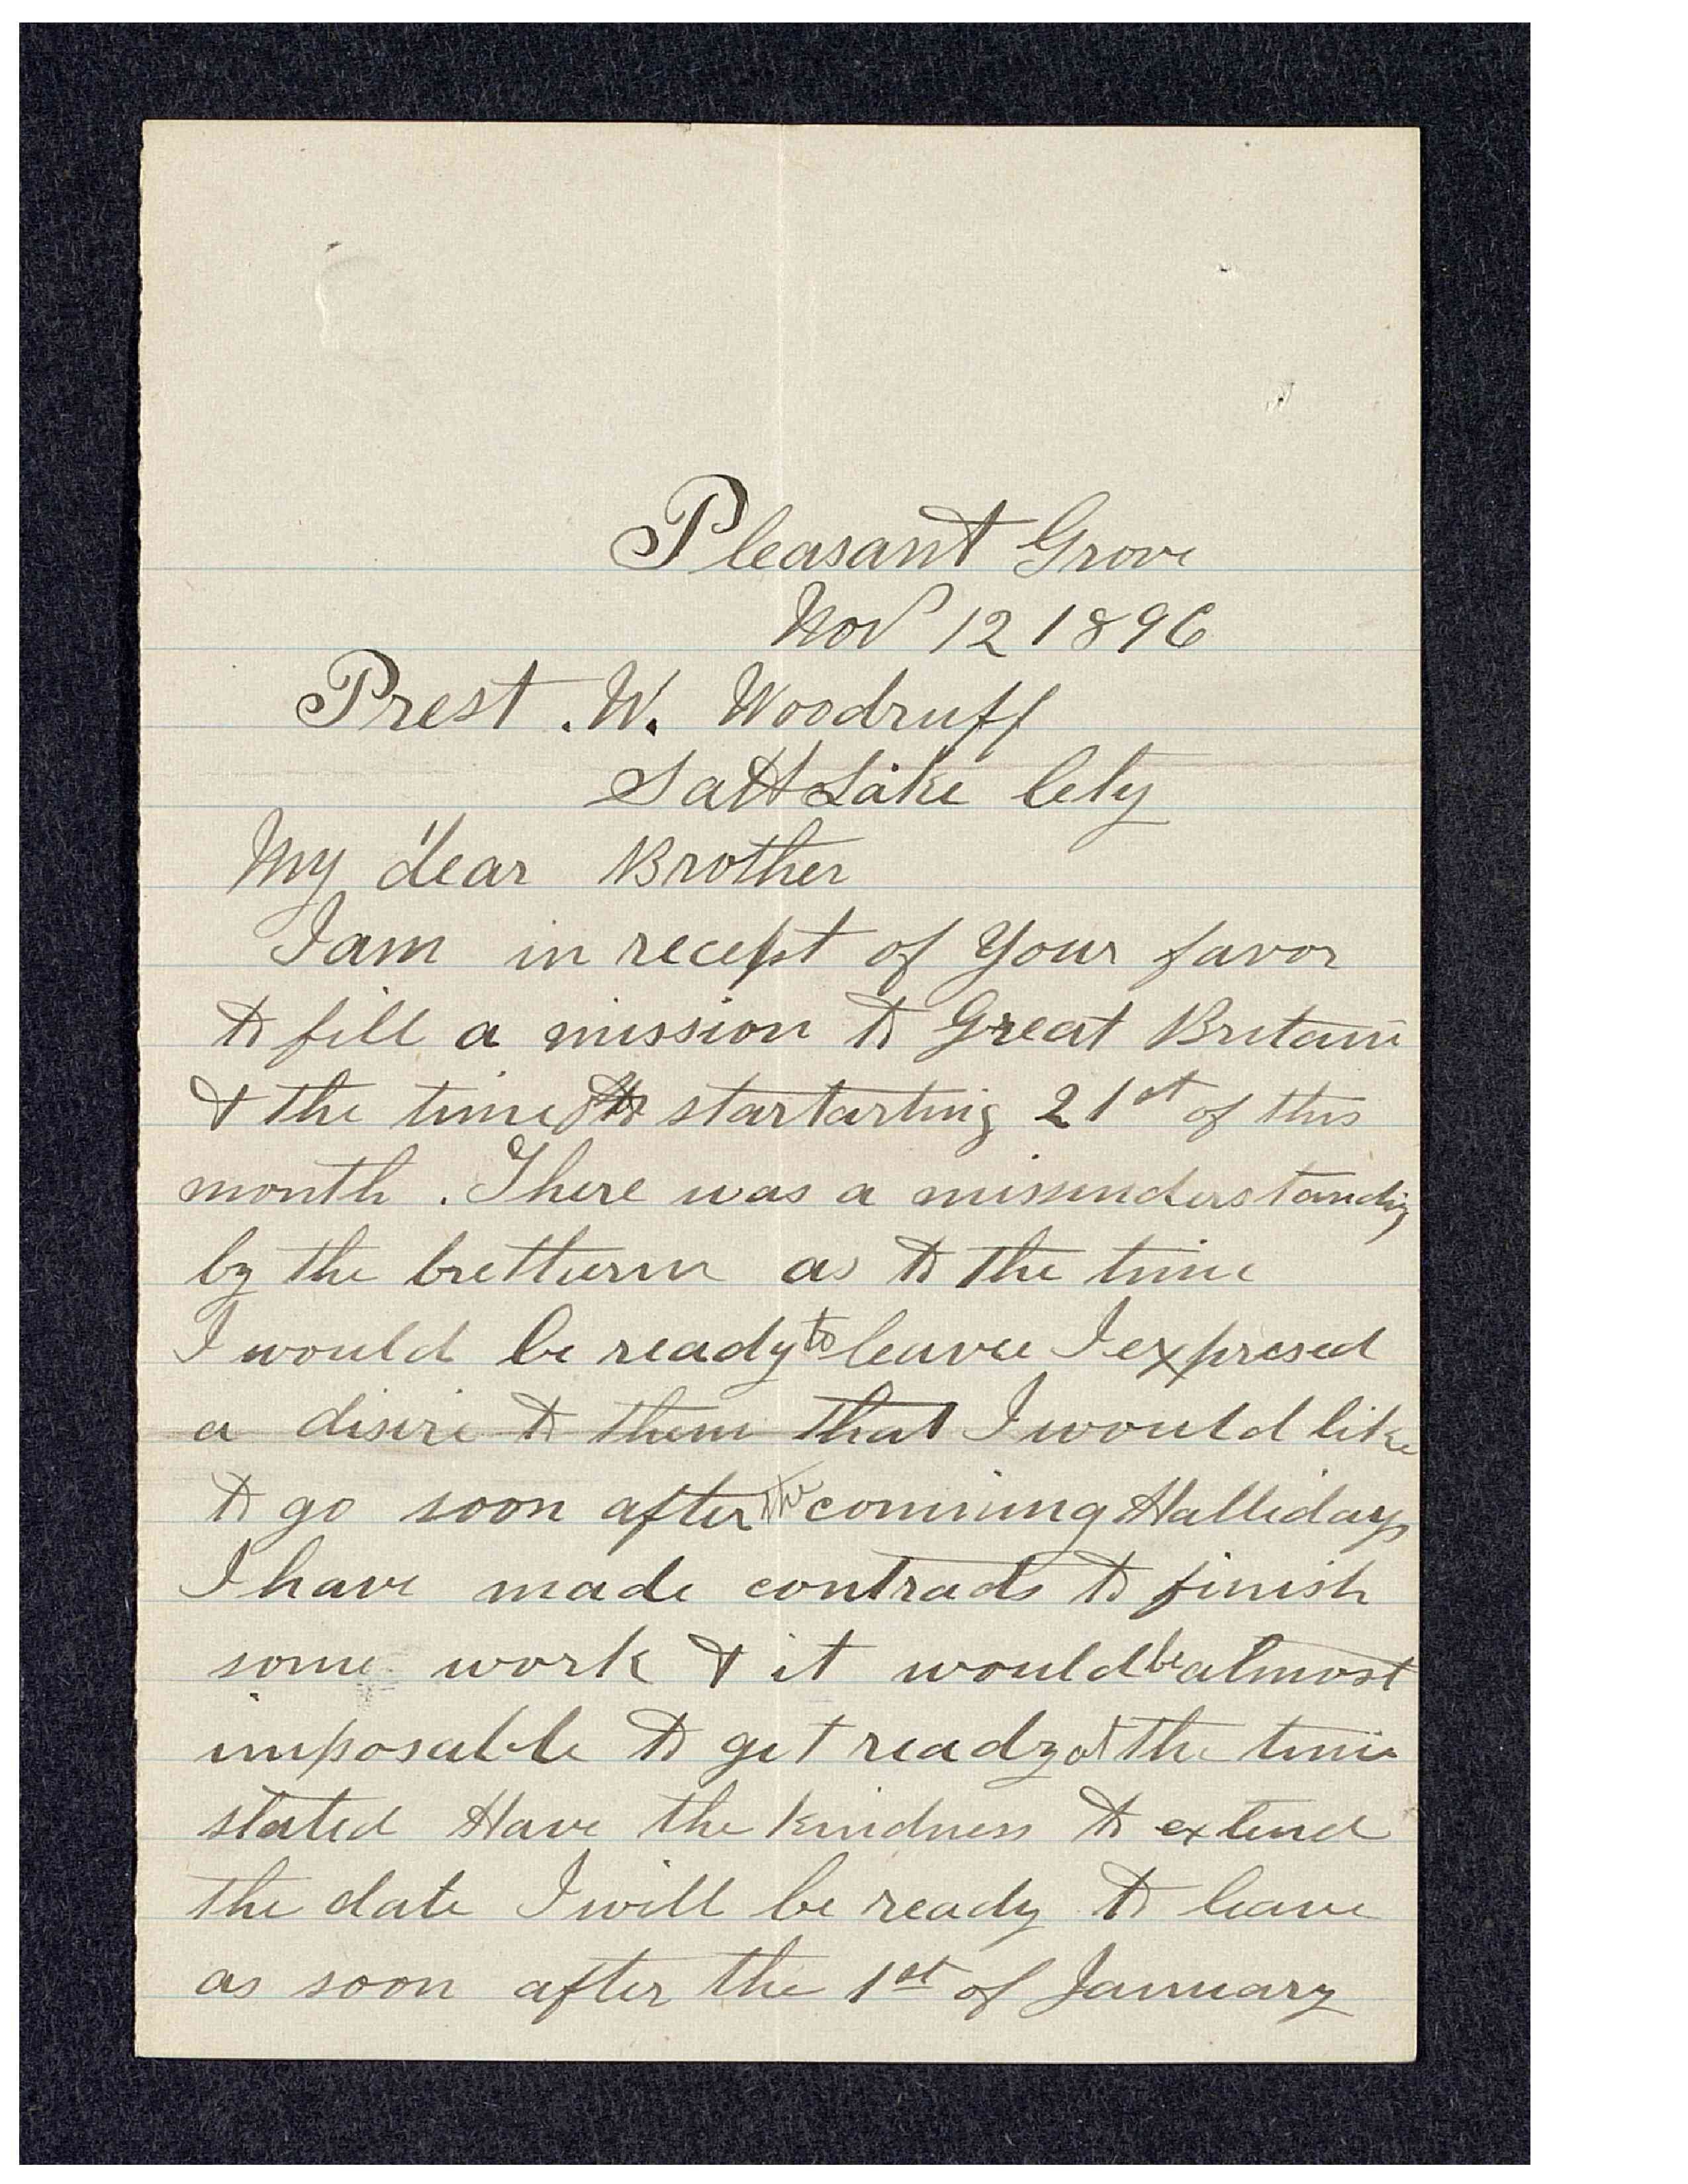 Pleasant Grove
Nov 12 1896
Prest. W. Woodruff
Salt Lake City
My dear Brother
I am in recept of Your favor
to fill a mission to Great Britain
& the time startarting 21st of this
month. There was a missunderstanding
by the bretheren as to the time
I would be ready to leavee I expresed
a disire to them that I would like
to go soon after the comining Hallidays
I have made contracts to finish
some work & it would be almost
imposable to get ready at the time
stated Have the kindness to extend
the date I will be ready to leave
as soon after the 1st of January